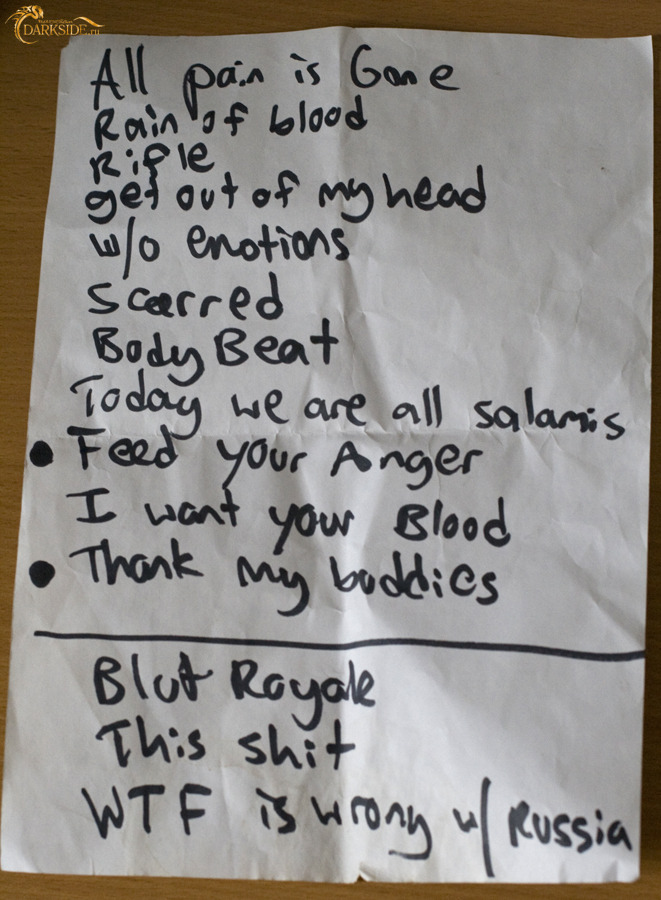 DARKSIDE.ru
All pain is Gone
Rain of blood
Rifle
get out of my head
w/o emotions
Scarred
Body Beat
Today we are all salamis
• Feed your Anger
I want your Blood
• Thank my buddies
Blut Royale
This shit
WTF is wrong w/ Russia